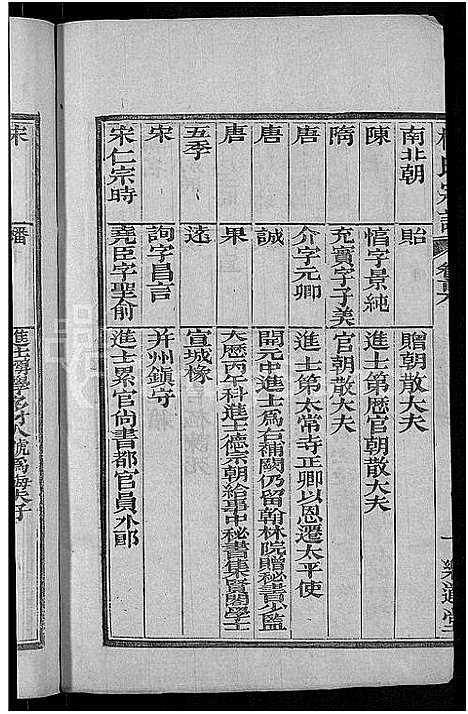 氏宗譜
樂道堂
南北朝 貽 贈朝散大夫
陳 慆字景純 進士第歷官朝散大夫
隋 充實字子美 官朝散大夫
唐 介字元卿 進士第太常寺正卿以恩遷太平使
唐 誠 開元中進士為右補闕仍留翰林院贈秘書少監
唐 果 大歷丙午科進士德宗朝給事中秘書集賢閣學士
五季 遠 宣城掾
宋 詢字昌言 并州鎮守
宋仁宗時 堯臣字聖俞 進士累官尚書都官員外郎
宋